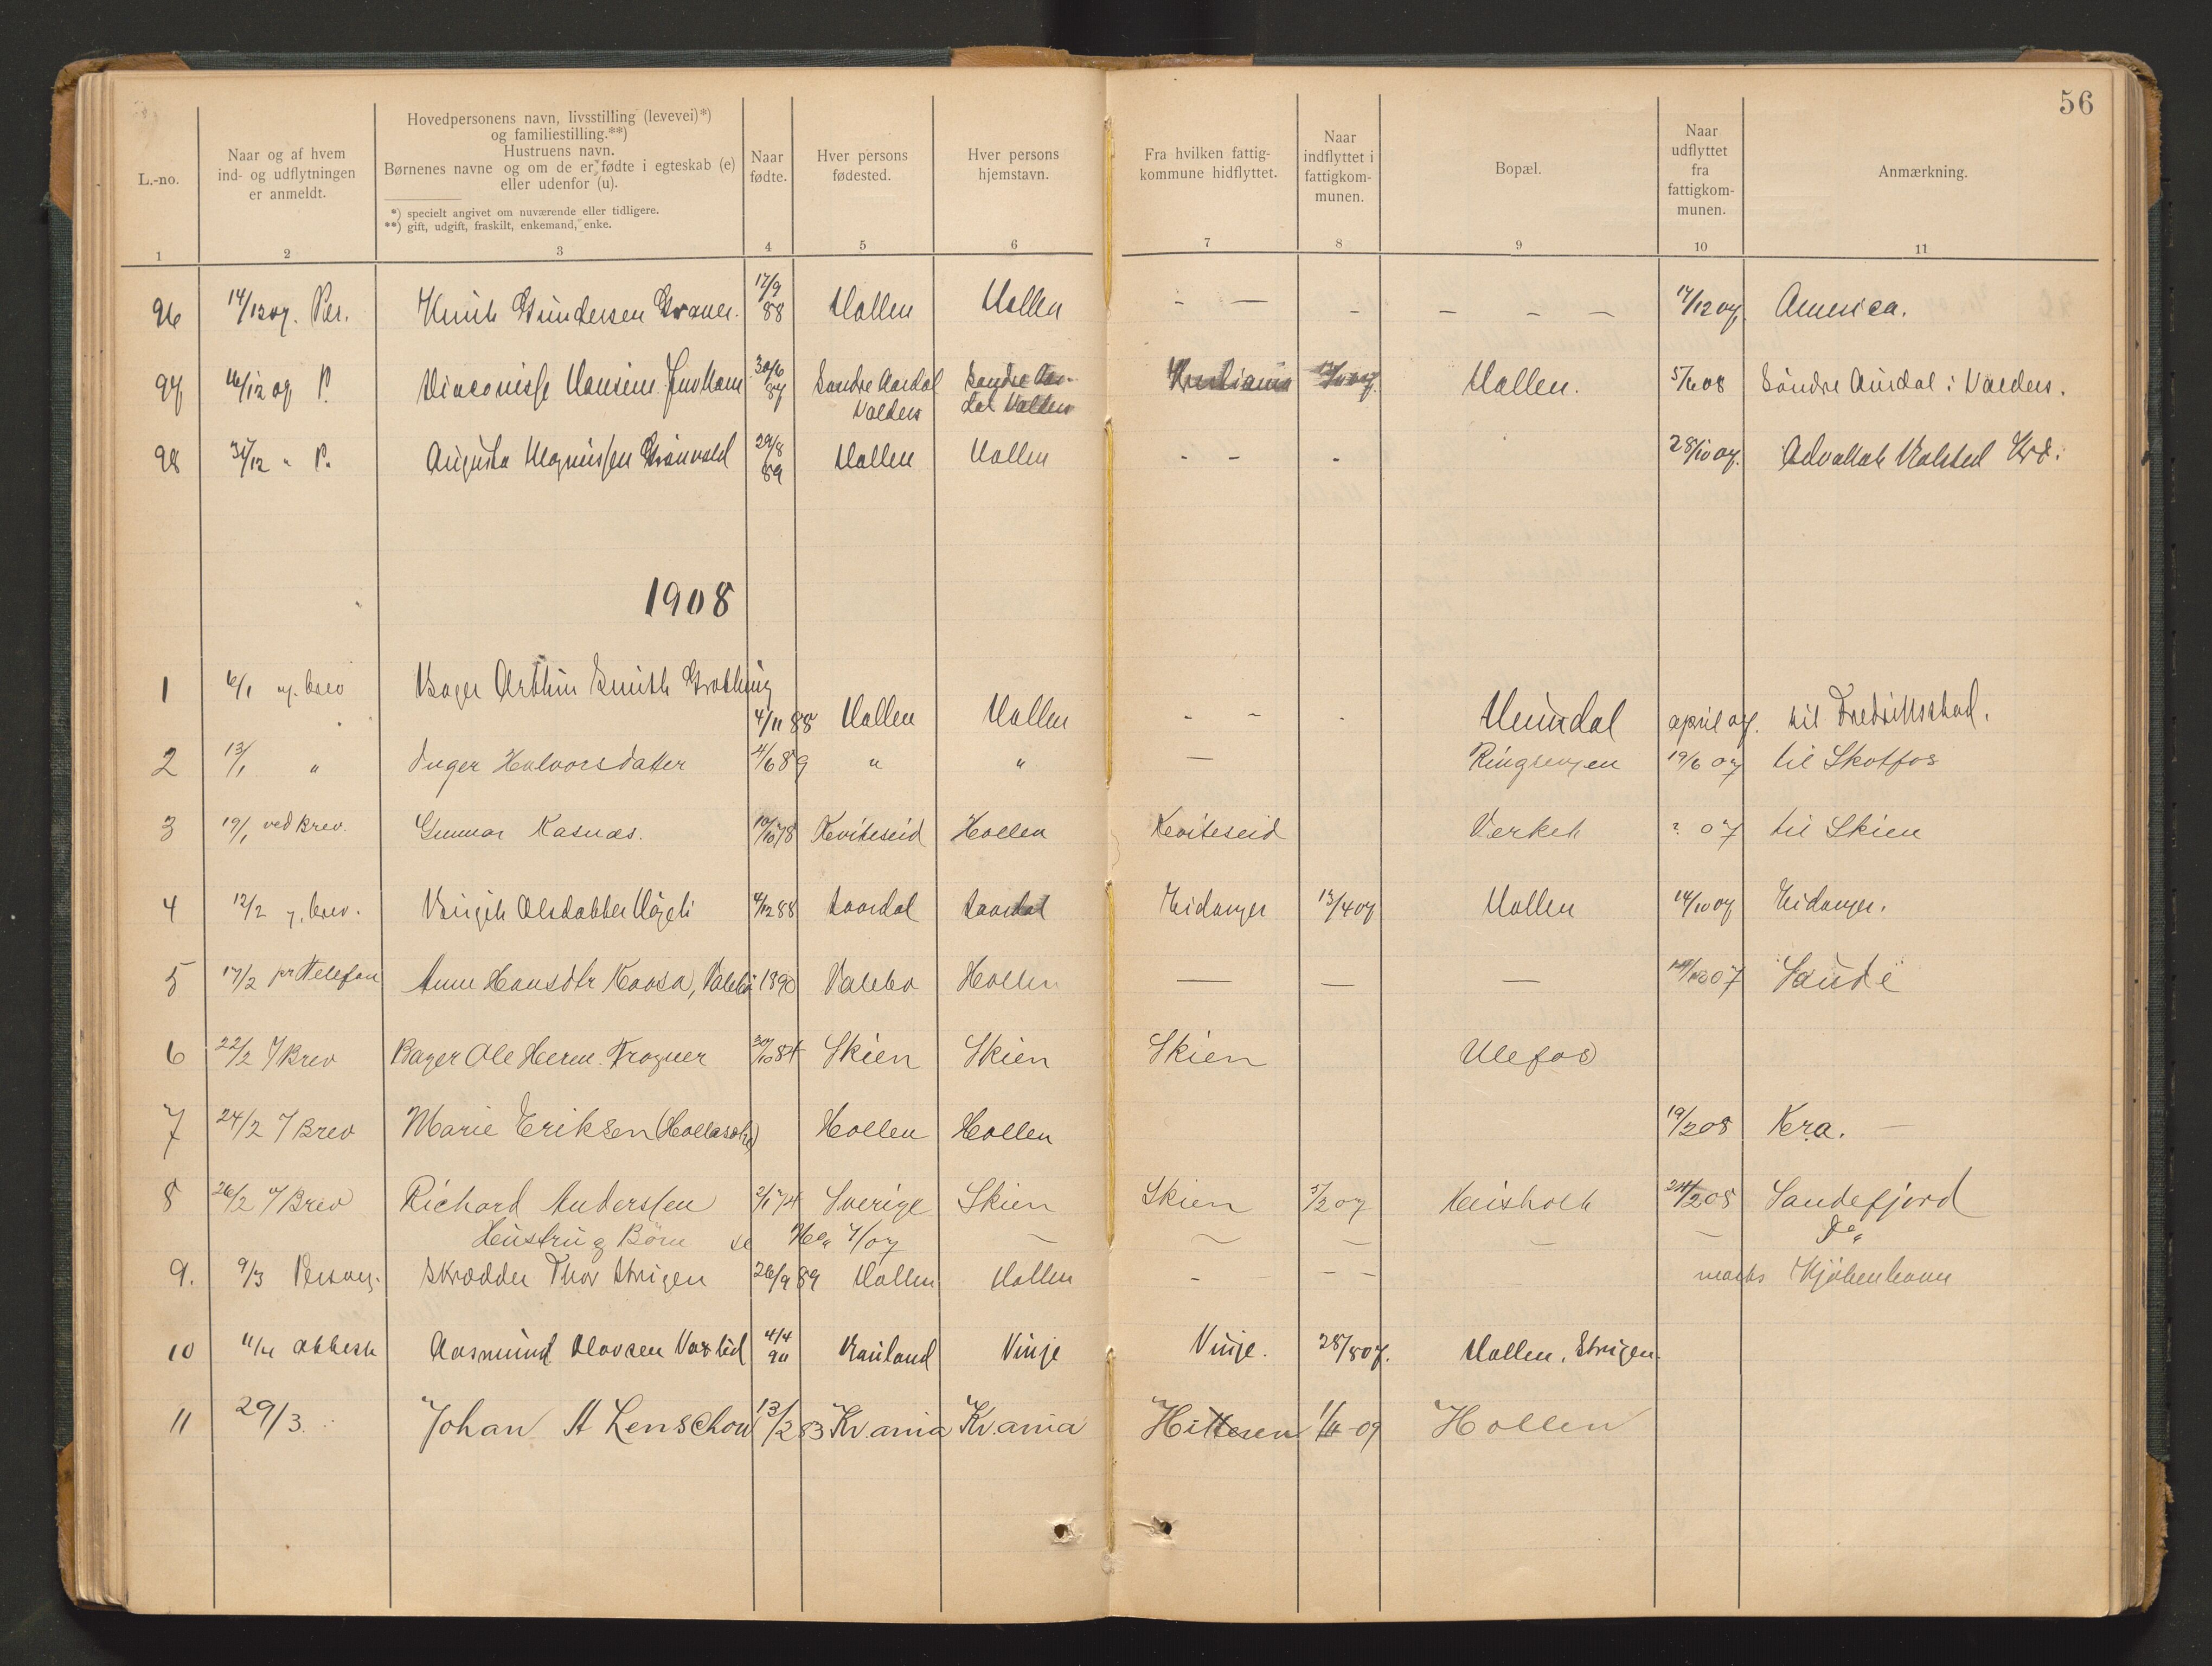 56
L.-no.
Naar og af hvem
ind- og udflytningen
er anmeldt.
Hovedpersonens navn, livsstilling (levevei)*)
og familiestilling.**)
Hustruens navn.
Børnenes navne og om de er fødte i egteskab (e)
eller udenfor (u).
*) specielt angivet om nuværende eller tidligere.
**) gift, udgift, fraskilt, enkemand, enke.
Naar
fødte.
Hver persons
fødested.
Hver persons
hjemstavn.
Fra hvilken fattig-
kommune hidflyttet.
Naar
indflyttet i
fattigkom-
munen.
Bopæl.
Naar
udflyttet
fra
fattigkom-
munen.
Anmærkning.
1 2 3 4 5 6 7 8 9 10 11
96 14/12 07. Per. Knut Gundersen 17/9 88 Hollen Hollen - — - — - — 17/12 07. America.
97 16/12 07 P. Diaconisse 30/6 87 Søndre Aurdal Valders Søndre Aur- dal Valders Kristiania Hollen. 5/6 08 Søndre Aurdal i Valders.
98 31/12 " P. Augusta Magnussen Grønvold 29/8 89 Hollen Hollen - - - 28/10 07. Advokat Kra.
1908
1 6/1 og. brev Bager Arthur Smith
4/11 88 Hollen Hollen - - - april 07. til Fredrikstad.
2 13/1 " Inger Halvorsdatter 4/6 89 " " — Ringsevjen 19/6 07 til Skotfos
3 19/1 ved Brev. Gunnar Kasnæs. 78 Kviteseid Hollen Kviteseid Verket ? 07 til Skien
4 12/2 g. brev. Olsdatter 4/12 88 Laardal Laardal Eidanger 13/4 07 Hollen 14/10 07 Eidanger.
5 17/2 pr Telefon Anne Hansdtr Kaasa, Valebø 1890 Valebø Hollen — — — 07 Saude
6 22/2 g/ Brev Bager Ole Herm. Frogner 30/10 84 Skien Skien Skien Ulefos
7 24/2 g/ Brev Marie Eriksen Hollen Hollen 19/2 08 Kra. —
8 26/2 g/ Brev Richard Anderssen 2/1 74 Sverige Skien Skien 5/2 07 Heisholt 24/2 08 Sandefjord
Hustru og Børn — — — — — Do
9. 9/3 Person. Skrædder Thor Strigen 26/9 89 Hollen Hollen - - - marts Kjøbenhavn
10 11/4 attest Aasmund Olavsen 4/4 90 Rauland Vinje Vinje. 28/8 07. Hollen, Strigen.
11 29/3. Johan A Lenschow 13/2 83 Kr.ania Kr.ania 09 Hollen